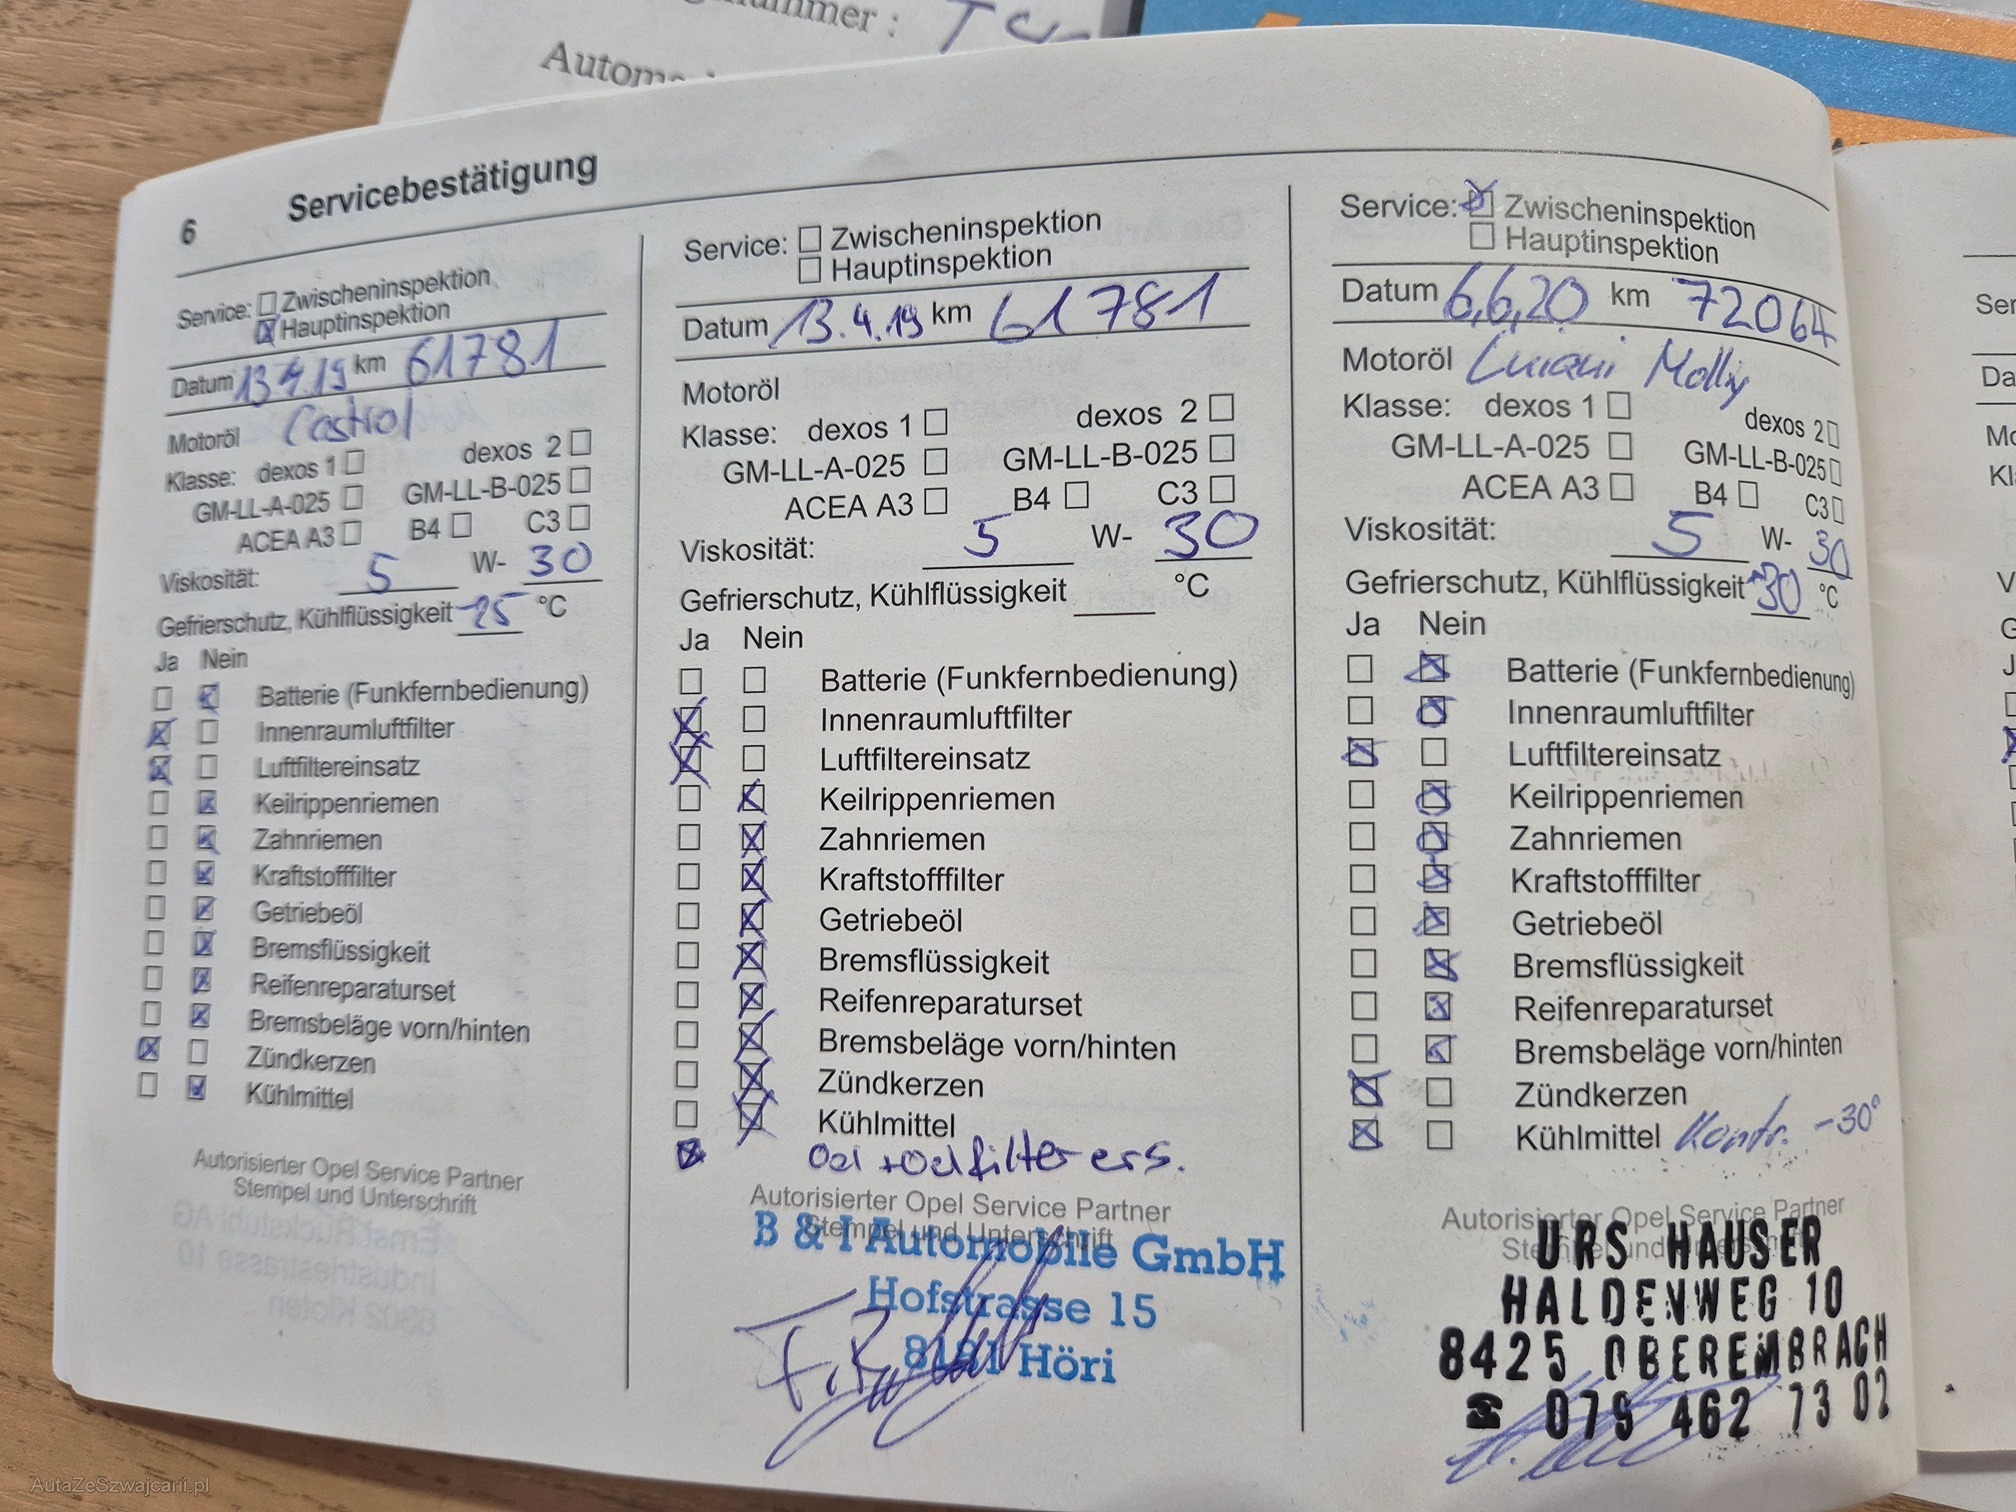 nummer :
6 Servicebestätigung
Service: Zwischeninspektion
Hauptinspektion
Datum 13.4.19 km 61781
Motoröl Castrol
Klasse: dexos 1 dexos 2
GM-LL-A-025 GM-LL-B-025
ACEA A3 B4 C3
Viskosität: 5 W- 30
Gefrierschutz, Kühlflüssigkeit -25 °C
Ja Nein
Batterie (Funkfernbedienung)
Innenraumluftfilter
Luftfiltereinsatz
Keilrippenriemen
Zahnriemen
Kraftstofffilter
Getriebeöl
Bremsflüssigkeit
Reifenreparaturset
Bremsbeläge vorn/hinten
Zündkerzen
Kühlmittel
Autorisierter Opel Service Partner
Stempel und Unterschrift
Service: Zwischeninspektion
Hauptinspektion
Datum 13.4.19 km 61781
Motoröl
Klasse: dexos 1 dexos 2
GM-LL-A-025 GM-LL-B-025
ACEA A3 B4 C3
Viskosität: 5 W- 30
Gefrierschutz, Kühlflüssigkeit °C
Ja Nein
Batterie (Funkfernbedienung)
Innenraumluftfilter
Luftfiltereinsatz
Keilrippenriemen
Zahnriemen
Kraftstofffilter
Getriebeöl
Bremsflüssigkeit
Reifenreparaturset
Bremsbeläge vorn/hinten
Zündkerzen
Kühlmittel
Oel + Oelfilter ers.
Autorisierter Opel Service Partner
Stempel und Unterschrift
B & I Automobile GmbH
Hofstrasse 15
8181 Höri
Service: Zwischeninspektion
Hauptinspektion
Datum 6,6,20 km 72064
Motoröl Luiqui Molly
Klasse: dexos 1 dexos 2
GM-LL-A-025 GM-LL-B-025
ACEA A3 B4 C3
Viskosität: 5 W- 30
Gefrierschutz, Kühlflüssigkeit -30 °C
Ja Nein
Batterie (Funkfernbedienung)
Innenraumluftfilter
Luftfiltereinsatz
Keilrippenriemen
Zahnriemen
Kraftstofffilter
Getriebeöl
Bremsflüssigkeit
Reifenreparaturset
Bremsbeläge vorn/hinten
Zündkerzen
Kühlmittel Kontr. -30°
Autorisierter Opel Service Partner
Stempel und Unterschrift
URS HAUSER
HALDENWEG 10
8425 OBEREMBRACH
☎ 079 462 73 02
AutaZeSzwajcarii.pl